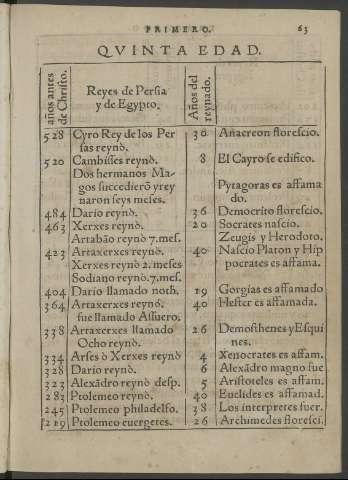 PRIMERO. 63
QVINTA EDAD.
años antes de Christo. Reyes de Persia y de Egypto. Años del reynado.
528 Cyro Rey de los Per 30 Anacreon florescio.
sas reynò.
520 Cambisses reynò. 8 El Cayro se edifico.
Dos hermanos Ma-
gos succedierõ y rey Pytagoras es affama
naron seys meses. do.
484 Dario reynò. 36 Democrito florescio.
463 Xerxes reynò. 20 Socrates nascio.
Artabão reynò 7. mes. Zeugis y Herodoto.
423 Artaxerxes reynò. 40 Nascio Platon y Hip
Xerxes reynò 2. meses pocrates es affama.
Sodiano reynò. 7. mes.
404 Dario llamado noth. 19 Gorgias es affamado
364 Artaxerxes reynò. 40 Hester es affamada.
fue llamado Assuero.
338 Artaxerxes llamado 26 Demosthenes y Esqui
Ocho reynò. nes.
334 Arses ò Xerxes reynò 4 Xenocrates es affam.
328 Dario reynò. 6 Alexãdro magno fue
323 Alexãdro reynò desp. 5 Aristoteles es affam.
283 Ptolemeo reynò. 40 Euclides es affamad.
245 Ptolemeo philadelfo. 38 Los interpretes fuer.
219 Ptolemeo euergetes. 26 Archimedes floresci.